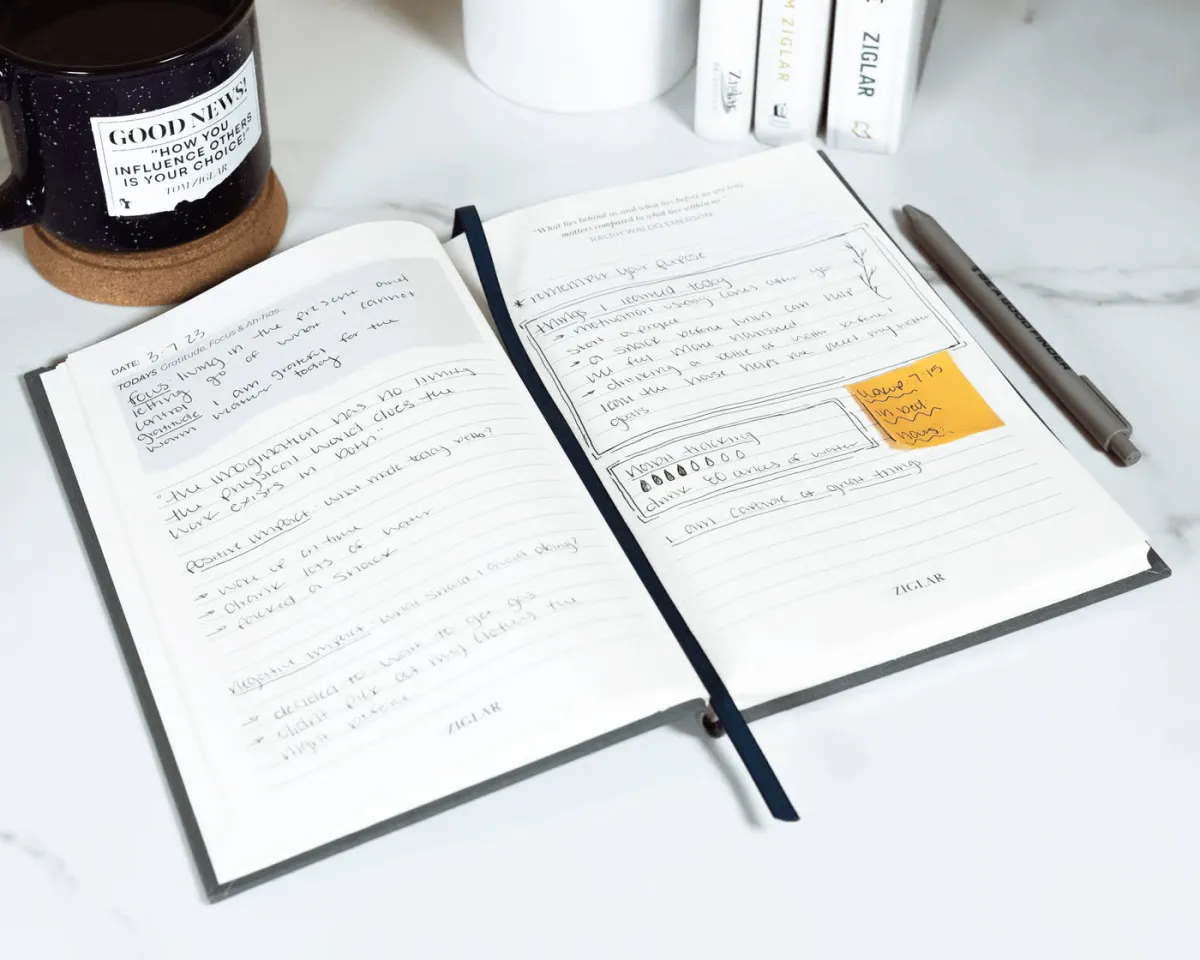 GOOD NEWS!
"HOW YOU
INFLUENCE OTHERS
IS YOUR CHOICE!"
TOM ZIGLAR
Ziglar
M ZIGLAR
ZIGLAR
DATE: 3.7.23
TODAYS Gratitude, Focus & Ah-has.
focus living in the present and
letting go of what I cannot
control
gratitude I am grateful for the
warm weather today
"The imagination has no limits
the physical world does the
work exists in both"
positive impact: what made today
→ woke up on-time
→ drank lots of water
→ packed a snack
negative impact: what should I avoid doing?
→ decided to wait to get gas
→ didn't pick out my clothes the
night before
ZIGLAR
"What lies behind us and what lies before us are tiny
matters compared to what lies within us."
RALPH WALDO EMERSON
* remember your purpose
things I learned today
→ motivation usually comes after you
start a project
→ a snack before lunch can help
me feel more nourished
→ drinking a bottle of water before I
leave the house helps me meet my water
goals
habit tracking
drink 80 ounces of water
I am capable of great things
wakeup: 7:15
in bed:
hours:
ZIGLAR